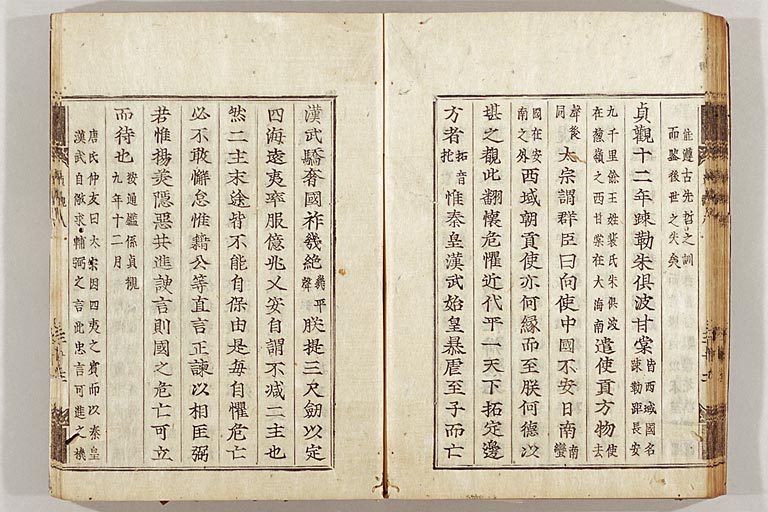 能遵古先哲之訓
而鑒後世之失矣
貞觀十二年疎勒朱俱波甘棠皆西域國名疎勒距長安
九千里餘王姓裴氏朱俱波在葱嶺之西甘棠在大海南遣使貢方物使去
聲後同太宗謂群臣曰向使中國不安日南南蠻
國在安南之外西域朝貢使亦何緣而至朕何德以
堪之觀此翻懷危懼近代平一天下拓定邊
方者拓音托惟秦皇漢武始皇暴虐至子而亡
漢武驕奢國祚幾絶幾平聲朕提三尺劒以定
四海遠夷率服億兆乂安自謂不减二主也
然二主末途皆不能自保由是每自懼危亡
必不敢懈怠惟藉公等直言正諫以相匡弼
若惟揚美隱惡共進諛言則國之危亡可立
而待也按通鑑係貞觀九年十二月
唐氏仲友曰太宗因四夷之賓而以秦皇
漢武自儆求輔弼之言此忠言可進之機